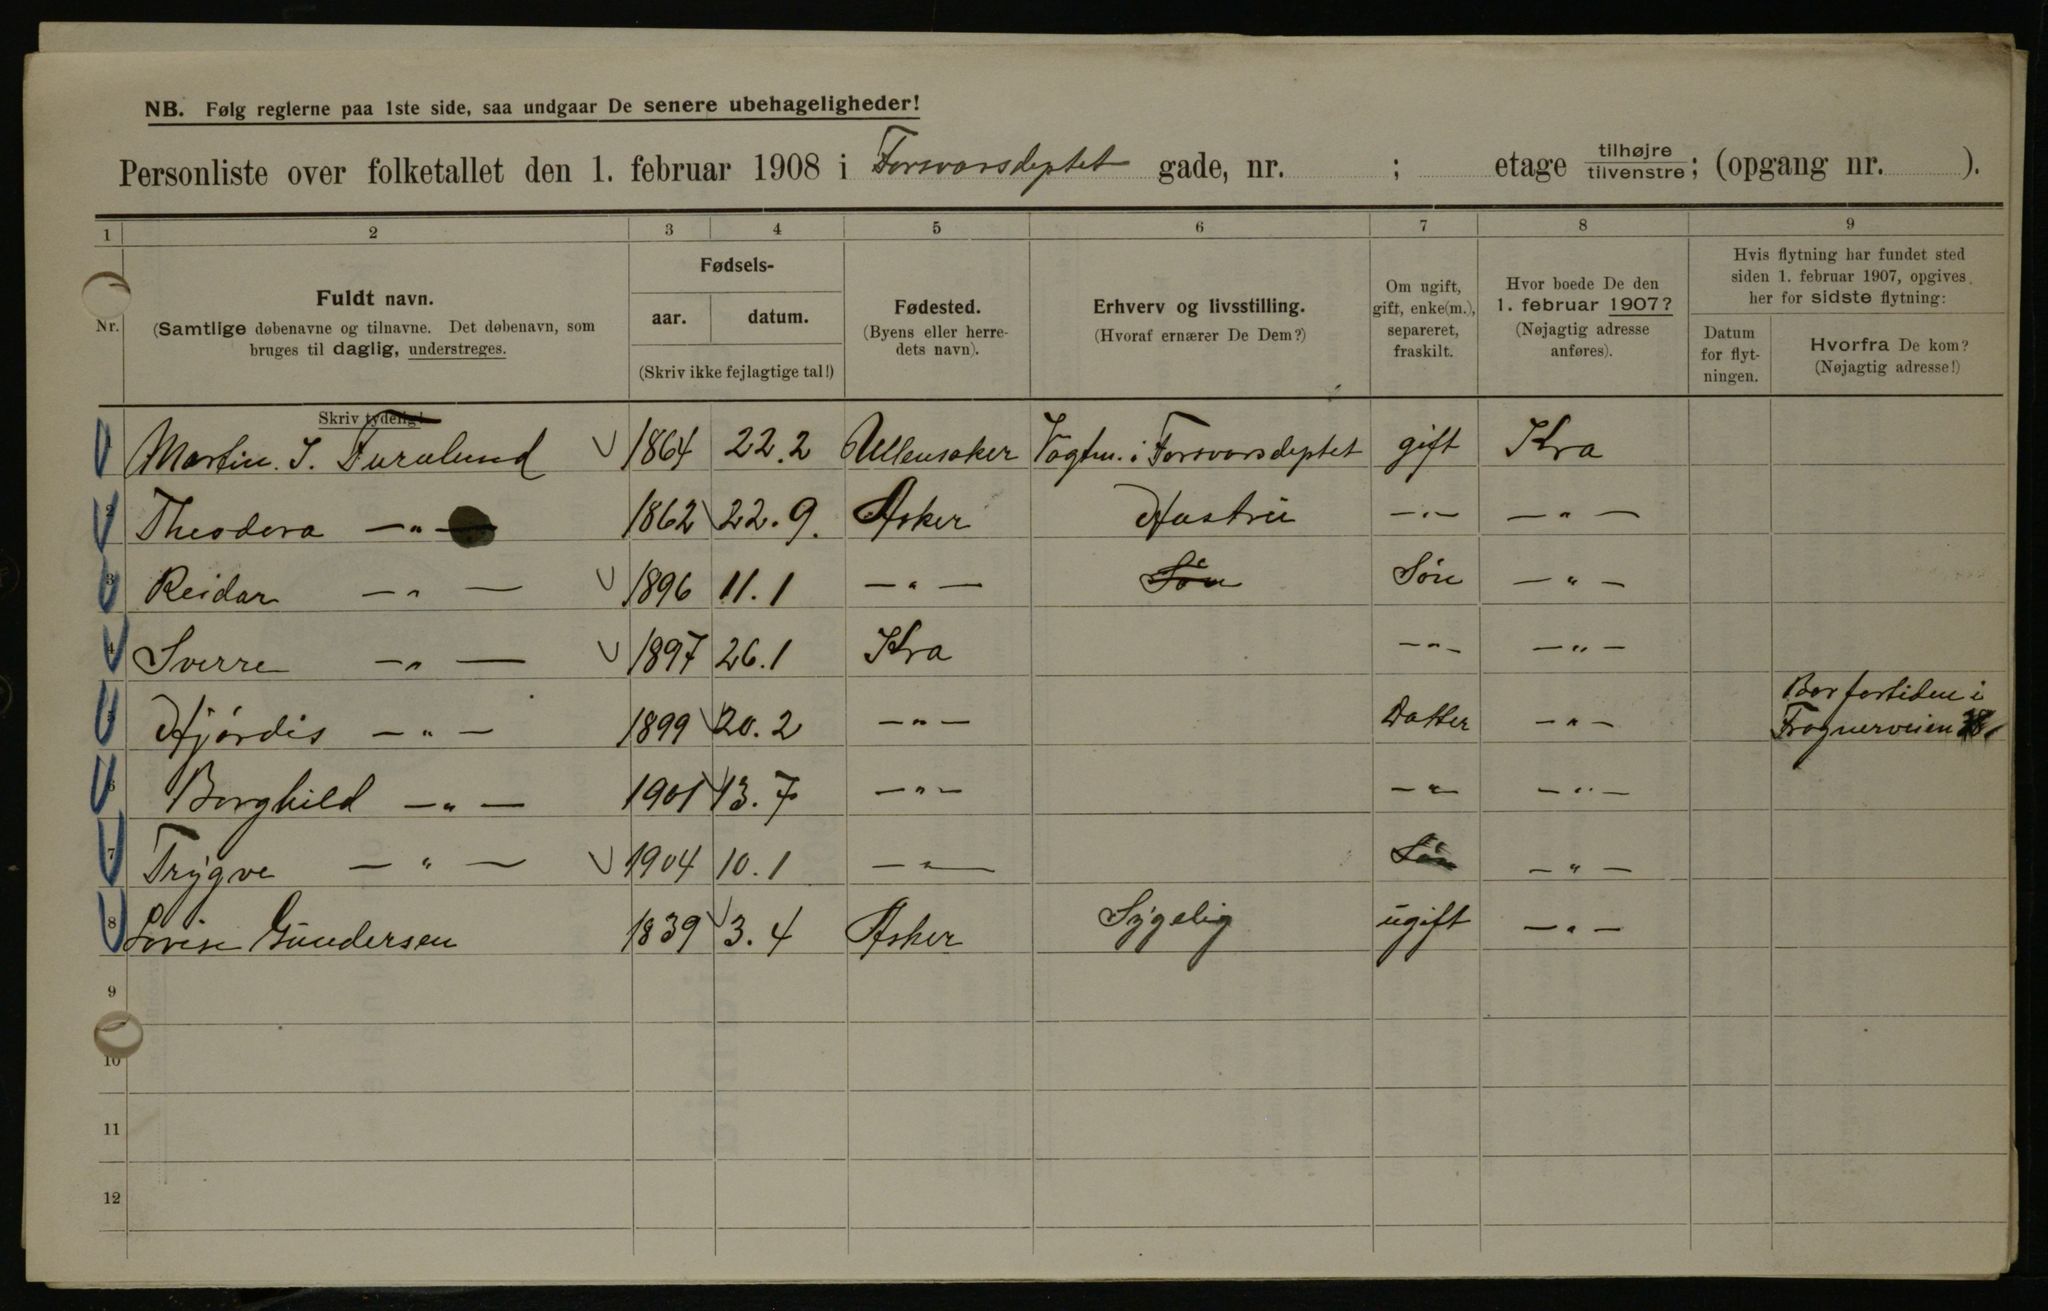 NB. Følg reglerne paa 1ste side, saa undgaar De senere ubehageligheder!
Personliste over folketallet den 1. februar 1908 i Forsvarsdeptet gade, nr. ; etage tilhøjre/tilvenstre; (opgang nr. ).
1 2 3 4 5 6 7 8 9
Nr.
Fuldt navn.
(Samtlige døbenavne og tilnavne. Det døbenavn, som
bruges til daglig, understreges.
Skriv tydelig!
Fødsels-
aar. datum.
(Skriv ikke fejlagtige tal!)
Fødested.
(Byens eller herre-
dets navn).
Erhverv og livsstilling.
(Hvoraf ernærer De Dem?)
Om ugift,
gift, enke(m.),
separeret,
fraskilt.
Hvor boede De den
1. februar 1907?
(Nøjagtig adresse
anføres).
Hvis flytning har fundet sted
siden 1. februar 1907, opgives
her for sidste flytning:
Datum
for flyt-
ningen.
Hvorfra De kom?
(Nøjagtig adresse!)
1 Martin. I. Furulund 1864 22.2 Ullensaker Vagtm. i Forsvarsdeptet gift Kra
2 Theodora —„— 1862 22.9. Asker Hustru —„— —„—
3 Reidar —„— 1896 11.1 —„— Søn Søn —„—
4 Sverre —„— 1897 26.1 Kra —„— —„—
5 Hjørdis —„— 1899 20.2 —„— Datter —„— Bor fortiden i
Frognerveien
6 Borghild —„— 1901 13.7 —„— —„— —„—
7 Trygve —„— 1904 10.1 —„— Søn —„—
8 Lovise Gundersen 1839 3.4 Asker Sygelig ugift —„—
9
10
11
12